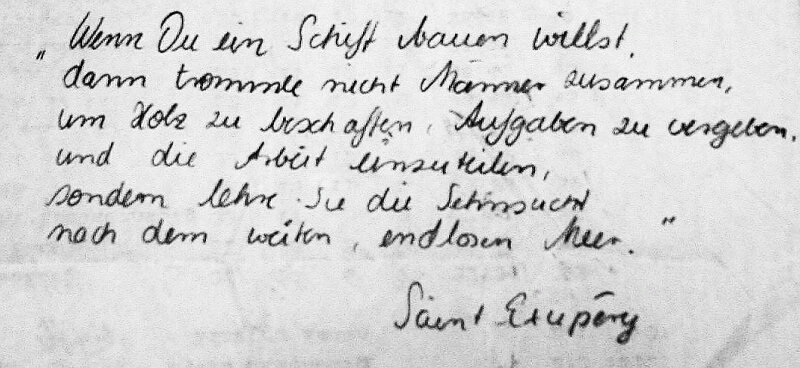 „Wenn Du ein Schiff bauen willst,
dann trommle nicht Männer zusammen,
um Holz zu beschaffen, Aufgaben zu vergeben,
und die Arbeit einzuteilen,
sondern lehre Sie die Sehnsucht
nach dem weiten, endlosen Meer."
Saint Exupéry